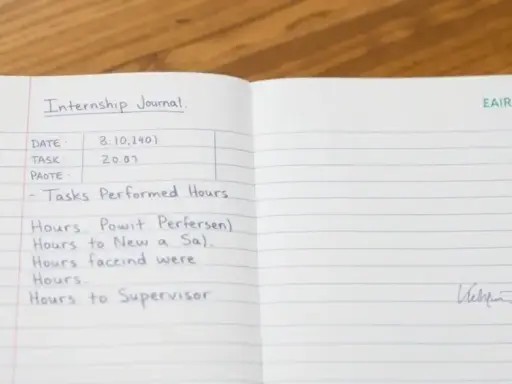 Internship Journal.
DATE: 8.10,1401
TASK 20.07
PAOTE:
- Tasks Performed Hours
Hours. Powit Perfersen)
Hours to New a Sa).
Hours faceind were
Hours.
Hours to Supervisor
EAIR